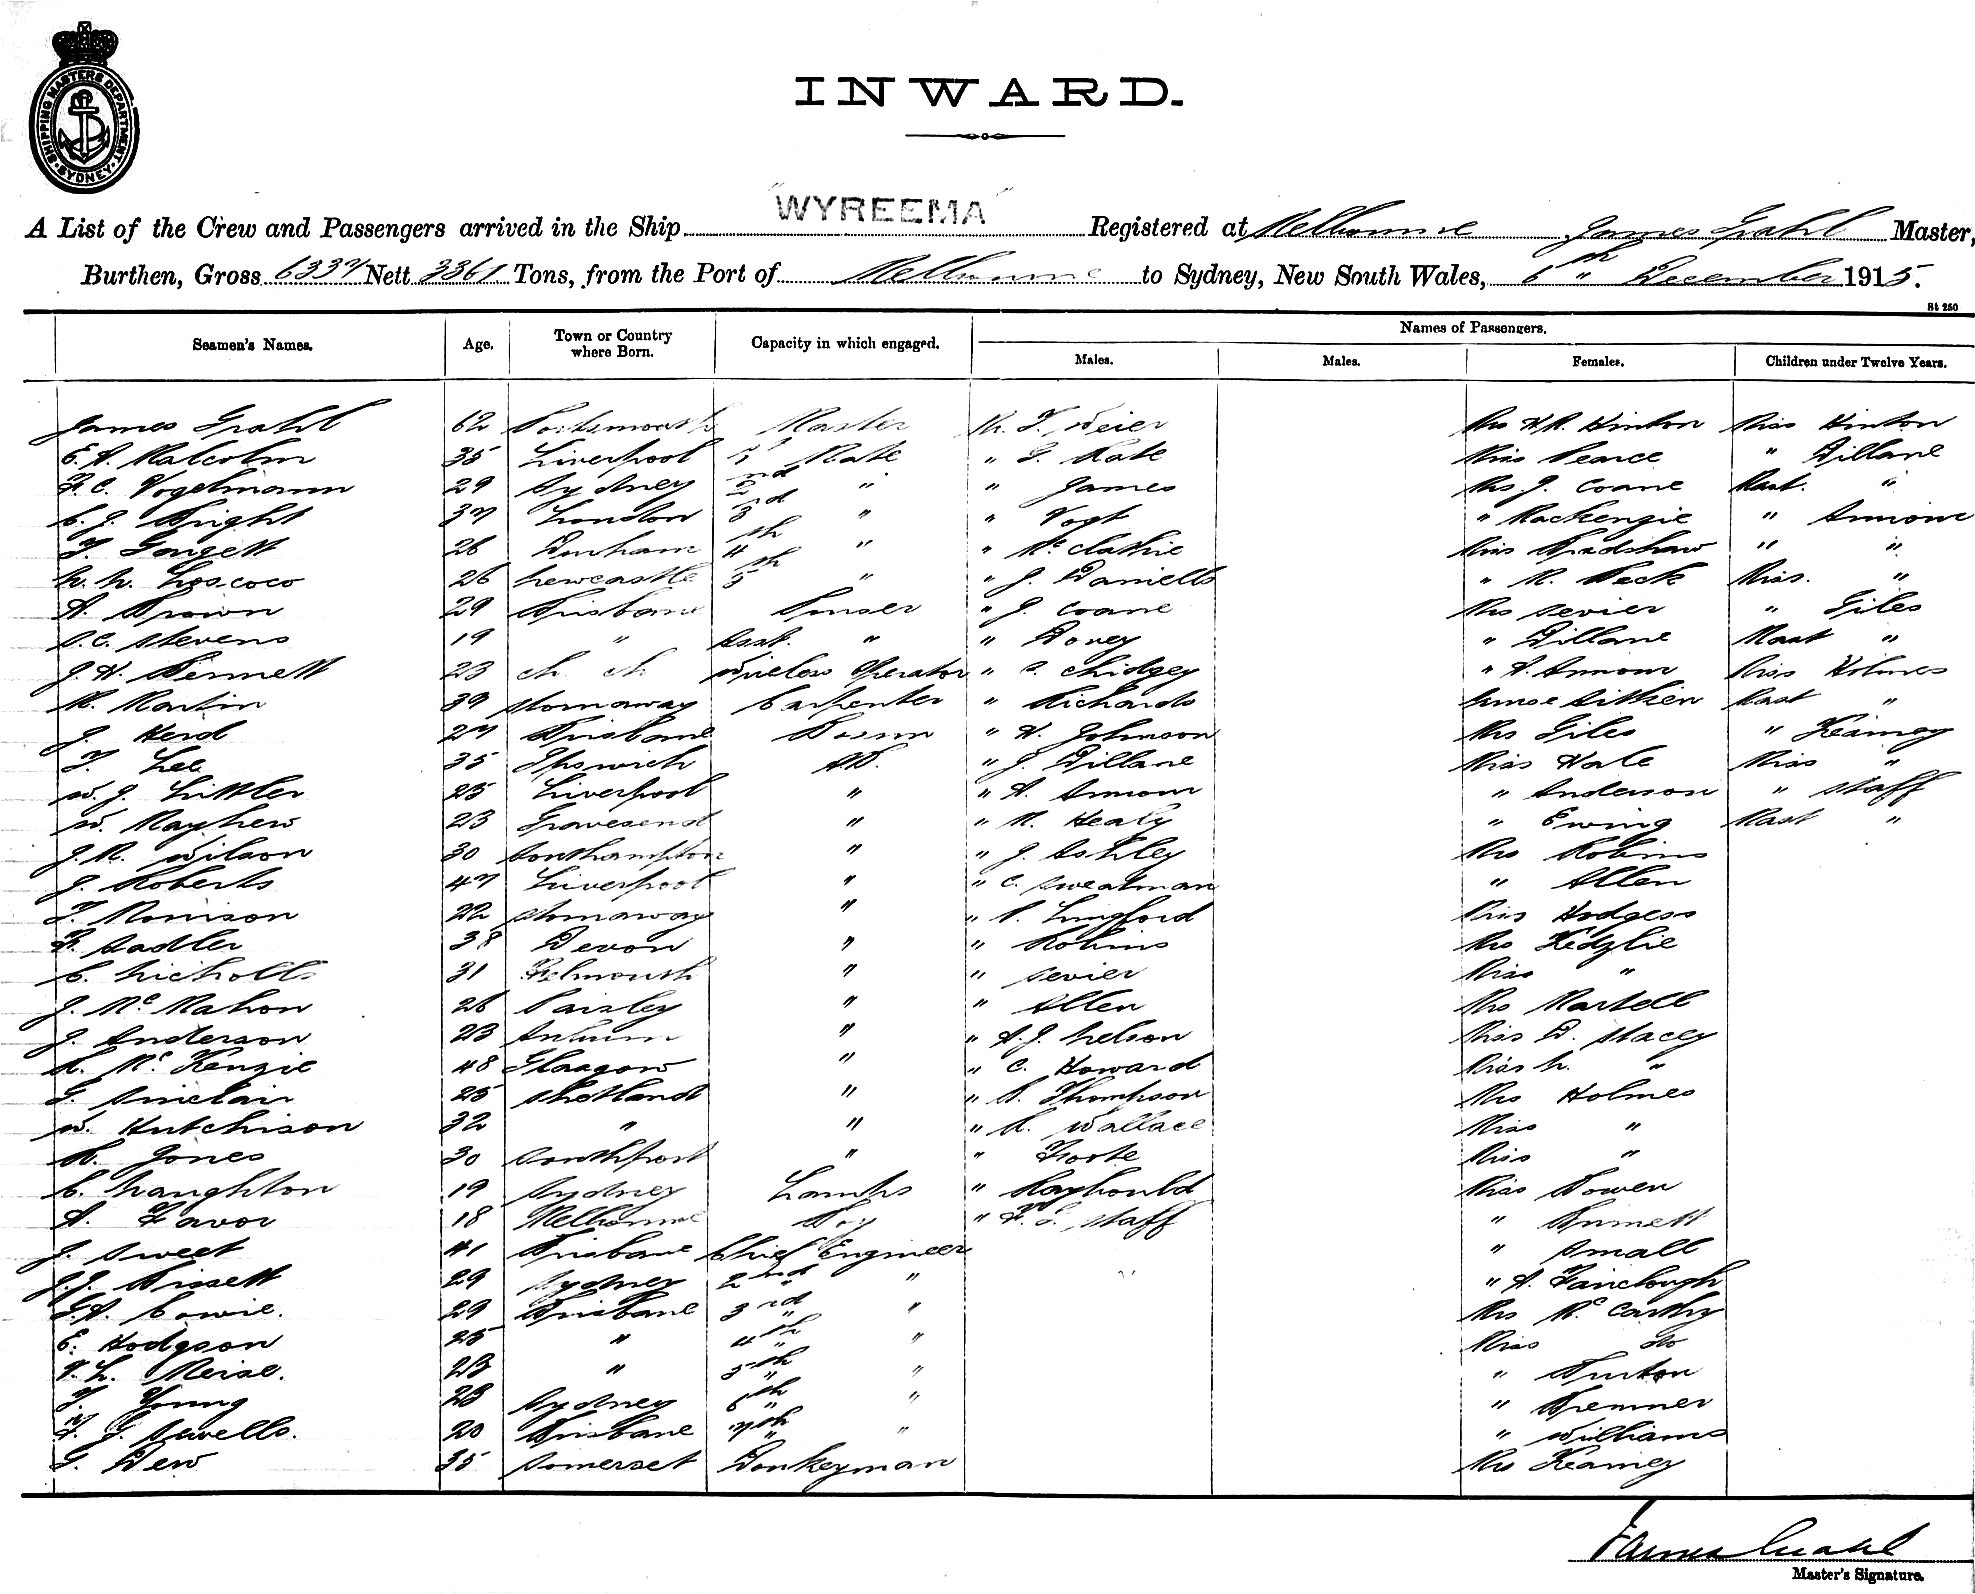 SHIPPING MASTERS DEPARTMENT. SYDNEY.
INWARD.
A List of the Crew and Passengers arrived in the Ship "WYREEMA" Registered at Melbourne James Grahl Master,
Burthen, Gross 6337 Nett 3361 Tons, from the Port of Melbourne to Sydney, New South Wales, 6th December 1915.
St 250
Seamen's Names. Age. Town or Country where Born. Capacity in which engaged. Names of Passengers.
Males. Males. Females. Children under Twelve Years.
James Grahl 62 Portsmouth Master Mr. T. Weier Mrs H.R. Hinton Miss Hinton
E. A. Malcolm 35 Liverpool 1st Mate " G. Kate Miss Pearce " Dillane
F. C. Vogelmann 29 Sydney 2nd " " James Mrs J. Coane Mast. "
C. J. Bright 37 London 3rd " " Vogt " Mackenzie " Armour
T. Gangett 26 Durham 4th " " McClathie Miss Bradshaw " "
N. N. Loscoco 26 Newcastle 5th " " J. Daniells " M. Peck Miss. "
A. Brown 29 Brisbane Purser " J. Coane Mrs Sevier " Giles
S. C. Stevens 19 " Asst. " " Dovey " Dillane Mast "
J. H. Bennett 23 Ch Ch Wireless Operator " S. Chidgey " A. Armour Miss Holmes
M. Martin 39 Stornaway Carpenter " Richards Nurse Aitken Mast "
J. Herd 27 Brisbane Bosun " H. Johnson Mrs Giles " Kearney
T. Lee 35 Ipswich AB. " J. Dillane Miss Hale Miss "
W. J. Littler 25 Liverpool " " A. Armour " Anderson " Staff
W. Mayhew 23 Gravesend " " M. Healy " Ewing Mast "
J. R. Wilson 30 Southampton " " J. Ashley Mrs Robins
J. Roberts 47 Liverpool " " C. Sweatman " Allen
T. Morrison 22 Stornaway " " P. Lingford Miss Hodgess
F. Sadler 38 Devon " " Robins Mrs Kedzlie
C. Nicholls 31 Falmouth " " Sevier Miss "
J. McMahon 26 Paisley " " Allen Mrs Martell
J. Anderson 23 Antrim " " A. J. Nelson Miss D. Stacey
R. McKenzie 48 Glasgow " " C. Howard Miss N. "
G. Sinclair 25 Shetland " " S. Thompson Mrs Holmes
W. Hutchison 32 " " " R. Wallace Miss "
R. Jones 30 Southport " " Foote Miss "
C. Naughton 19 Sydney Lamps " Raybould Miss Bowen
A. Favor 18 Melbourne Boy " F. G. Staff " Burnett
J. Sweet 41 Brisbane Chief Engineer " Small
J. J. Bissett 29 Sydney 2nd " " A. Fairclough
G. A. Cowie. 29 Brisbane 3rd " Mrs McCarthy
E. Hodgson 25 " 4th " Miss do
V. L. Meise. 23 " 5th " " Burton
T. Young 23 Sydney 6th " " Bremner
T. J. Sewells. 20 Brisbane 7th " " Williams
G. Dew 35 Somerset Donkeyman Mrs Kearney
James Grahl
Master's Signature.